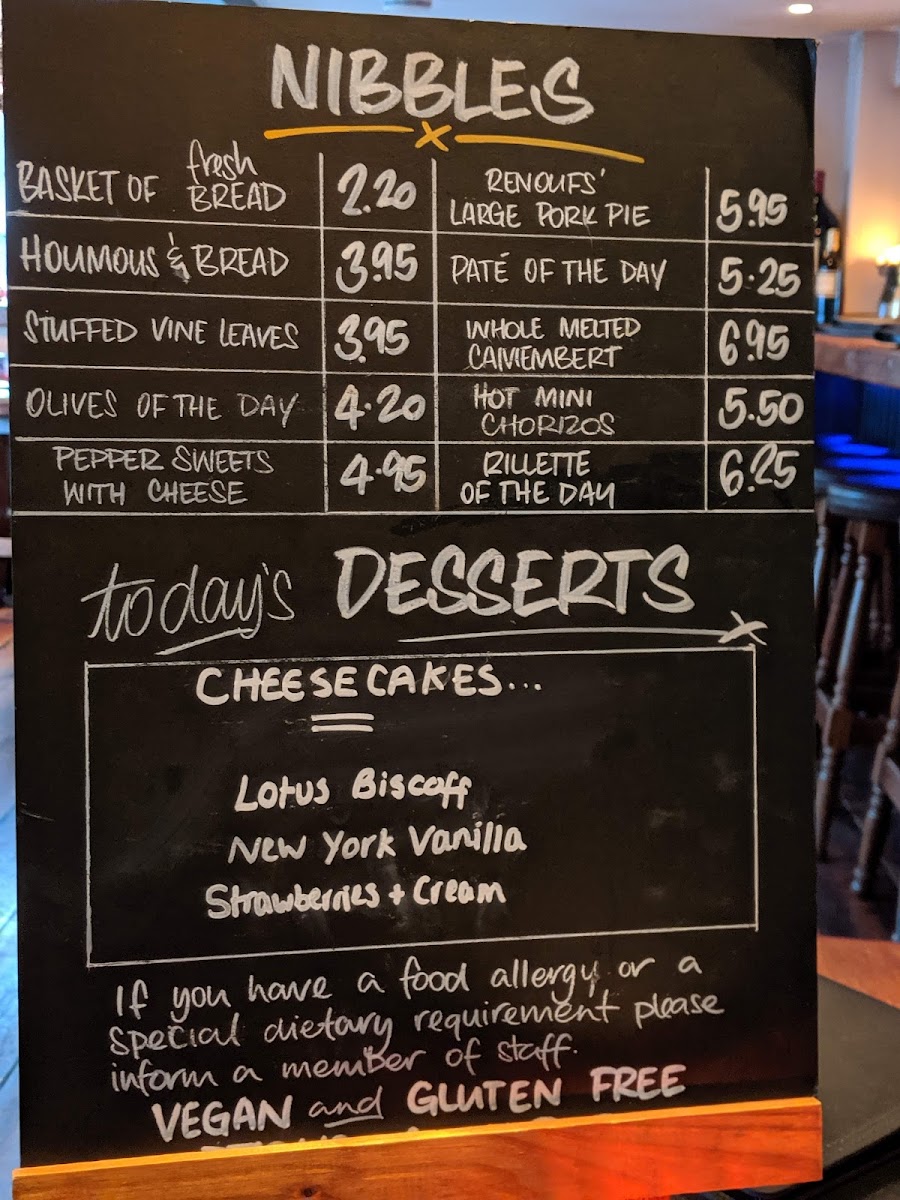 NIBBLES
BASKET OF fresh BREAD 2.20
HOUMOUS & BREAD 3.95
STUFFED VINE LEAVES 3.95
OLIVES OF THE DAY 4.20
PEPPER SWEETS
WITH CHEESE 4.95
RENOUFS'
LARGE PORK PIE 5.95
PATÉ OF THE DAY 5.25
WHOLE MELTED
CAMEMBERT 6.95
HOT MINI
CHORIZOS 5.50
RILLETTE
OF THE DAY 6.25
today's DESSERTS
CHEESECAKES...
Lotus Biscoff
New York Vanilla
Strawberries + Cream
If you have a food allergy or a
special dietary requirement please
inform a member of staff.
VEGAN and GLUTEN FREE